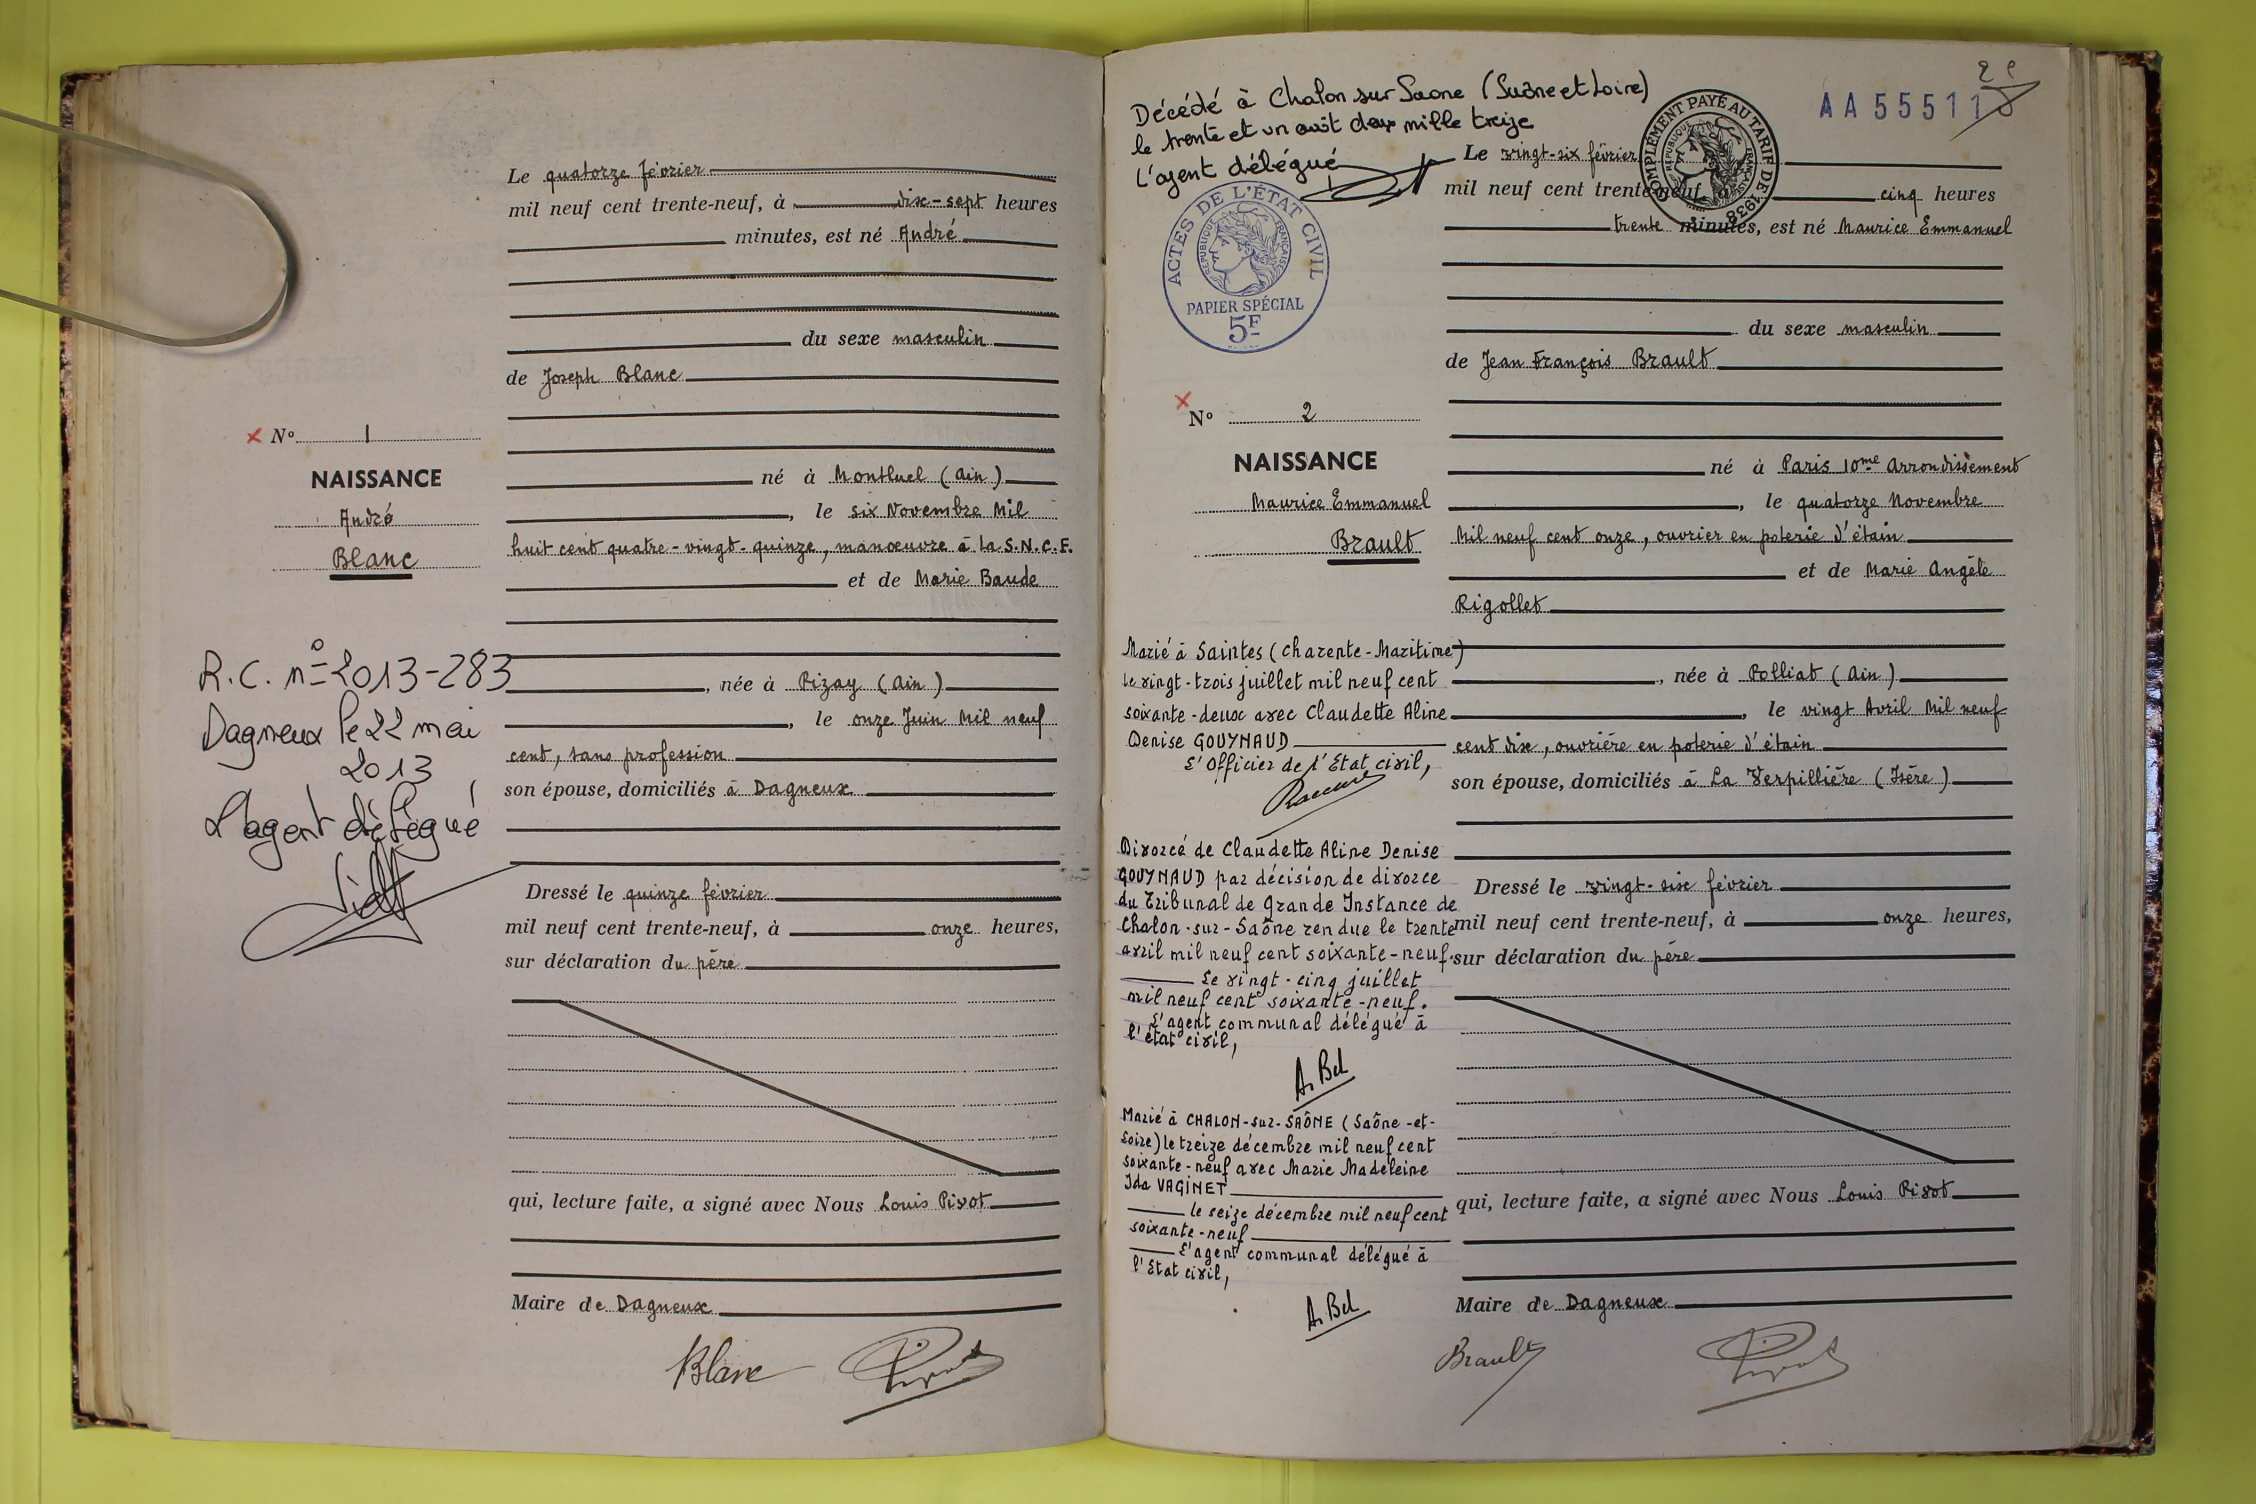 Le quatorze février
mil neuf cent trente-neuf, à dix-sept heures
minutes, est né André
du sexe masculin
de Joseph Blanc
N° 1
NAISSANCE
André
Blanc
né à Montluel (Ain)
, le six Novembre Mil
huit cent quatre-vingt-quinze, manœuvre à la S.N.C.F.
et de Marie Baude
R.C. n° 2013-283
Dagneux le 22 mai
2013
L'agent délégué
, née à Pizay (Ain)
, le onze Juin Mil neuf
cent, sans profession
son épouse, domiciliés à Dagneux
Dressé le quinze février
mil neuf cent trente-neuf, à onze heures,
sur déclaration du père
qui, lecture faite, a signé avec Nous Louis Pivot
Maire de Dagneux
Blanc Pivot
2
AA 55511
Décédé à Chalon sur Saone (Saône et Loire)
le trente et un août deux mille treize
L'agent délégué
COMPLÉMENT PAYÉ AU TARIF DE 1938
RÉPUBLIQUE FRANÇAISE
ACTES DE L'ÉTAT CIVIL
RÉPUBLIQUE FRANÇAISE
PAPIER SPÉCIAL
5F
Le vingt-six février
mil neuf cent trente-neuf, à cinq heures
trente minutes, est né Maurice Emmanuel
du sexe masculin
de Jean François Brault
N° 2
NAISSANCE
Maurice Emmanuel
Brault
né à Paris 10me Arrondissement
, le quatorze Novembre
Mil neuf cent onze, ouvrier en poterie d'étain
et de Marie Angèle
Rigollet
, née à Polliat (Ain)
, le vingt Avril Mil neuf
cent dix, ouvrière en poterie d'étain
son épouse, domiciliés à La Verpillière (Isère)
Dressé le vingt-six février
mil neuf cent trente-neuf, à onze heures,
sur déclaration du père
qui, lecture faite, a signé avec Nous Louis Pivot
Maire de Dagneux
Brault Pivot
Marié à Saintes (Charente-Maritime)
le vingt-trois juillet mil neuf cent
soixante-deux avec Claudette Aline
Denise GOUYNAUD
L'Officier de l'Etat civil,
Divorcé de Claudette Aline Denise
GOUYNAUD par décision de divorce
du Tribunal de Grande Instance de
Chalon-sur-Saône rendue le trente
avril mil neuf cent soixante-neuf.
Le vingt-cinq juillet
mil neuf cent soixante-neuf.
L'agent communal délégué à
l'état civil,
A. Bel
Marié à CHALON-sur-SAÔNE (Saône-et-
Loire) le treize décembre mil neuf cent
soixante-neuf avec Marie Madeleine
Ida VAGINET
le seize décembre mil neuf cent
soixante-neuf
L'agent communal délégué à
l'Etat civil,
A. Bel